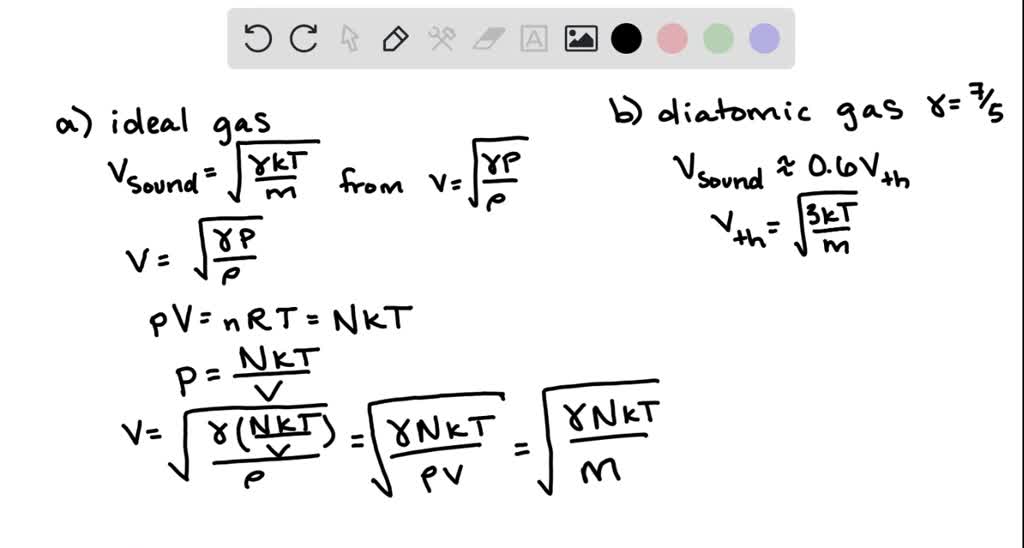 a) ideal gas
V_sound = √(γkT/m) from v = √(γP/ρ)
V = √(γP/ρ)
pV = nRT = NkT
P = NkT/V
V = √(γ(NkT/V)/ρ) = √(γNkT/ρV) = √(γNkT/m)
b) diatomic gas γ = 7/5
V_sound ≈ 0.6V_th
V_th = √(3kT/m)